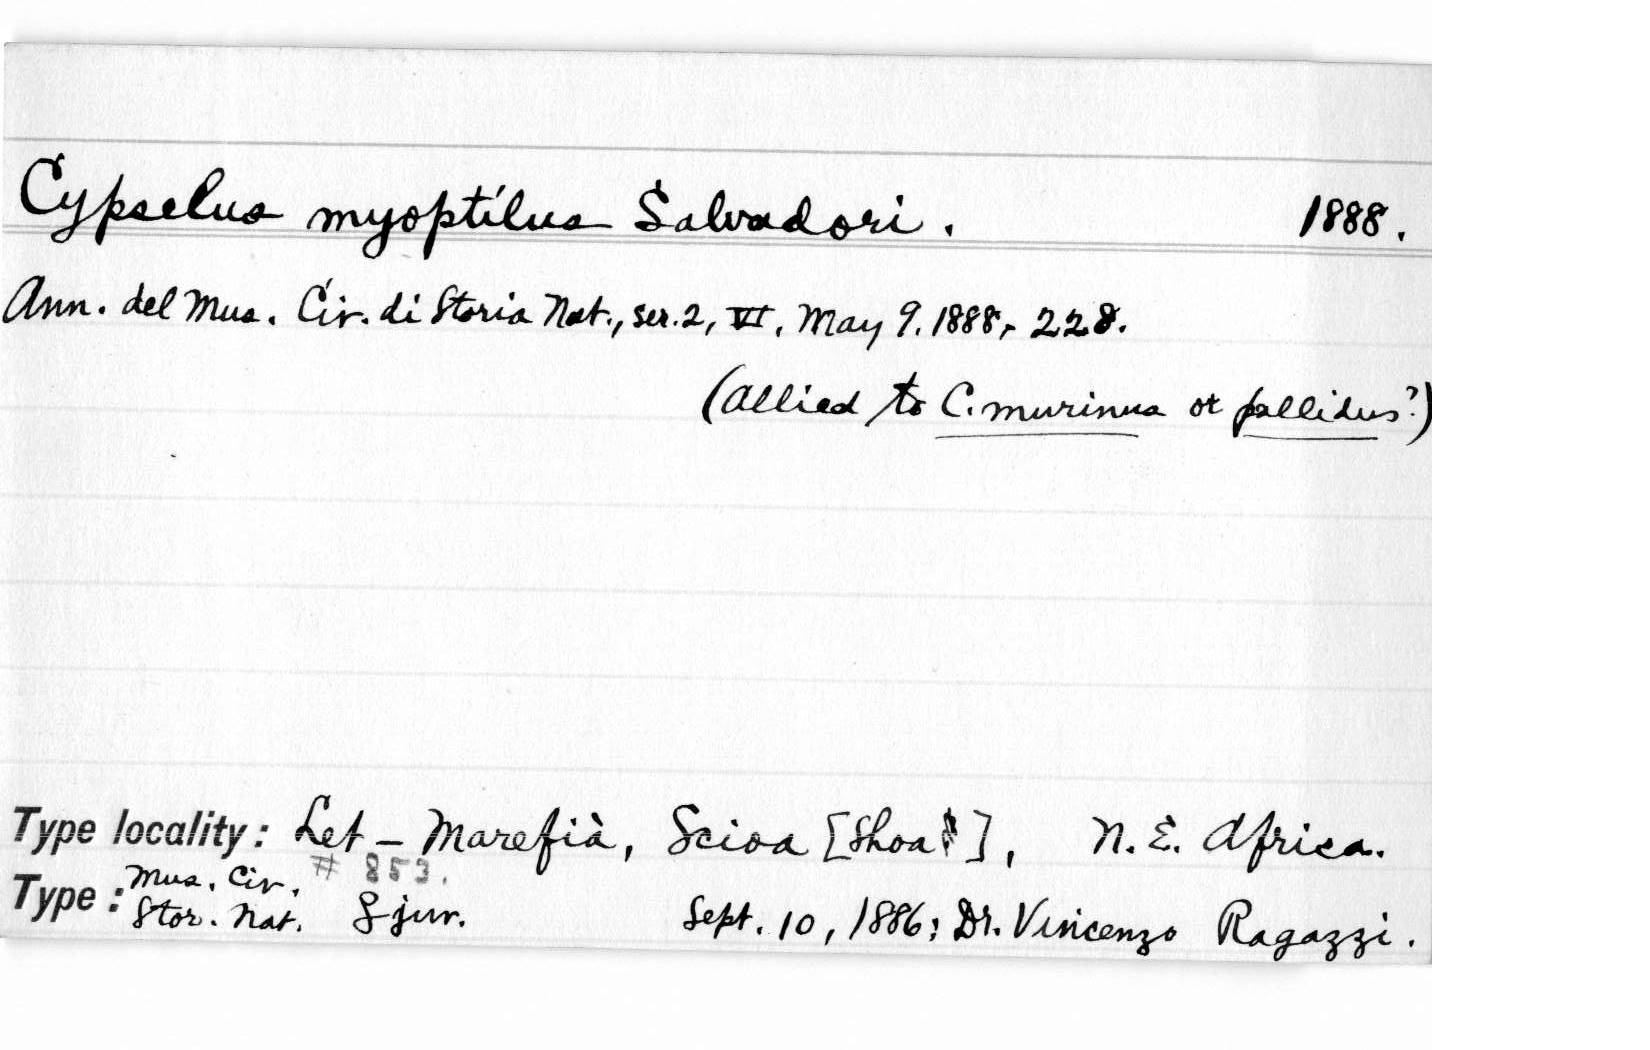 Cypselus myoptilus Salvadori. 1888.
Ann. del Mus. Civ. di Storia Nat., ser. 2, VI, May 9, 1888, 228.
(allied to C. murinus or pallidus?)
Type locality: Let-Marefià, Scioa [Shoa], N.E. Africa.
# 853.
Type: Mus. Civ. Stor. Nat. ♀ juv. Sept. 10, 1886; Dr. Vincenzo Ragazzi.